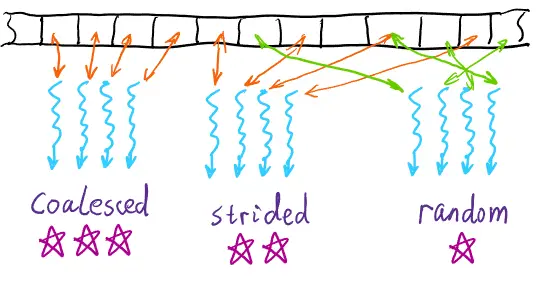 coalesced
strided
random